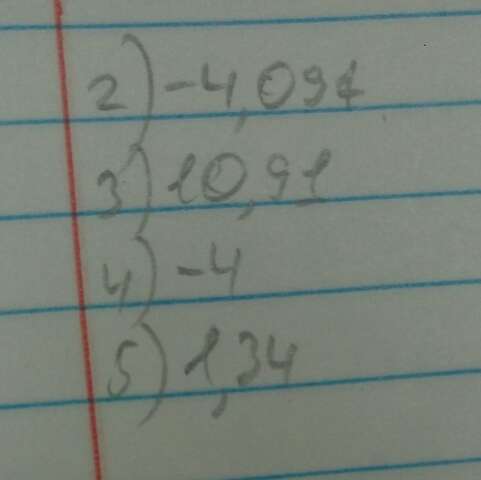 2) -4,094
3) 10,91
4) -4
5) 1,34